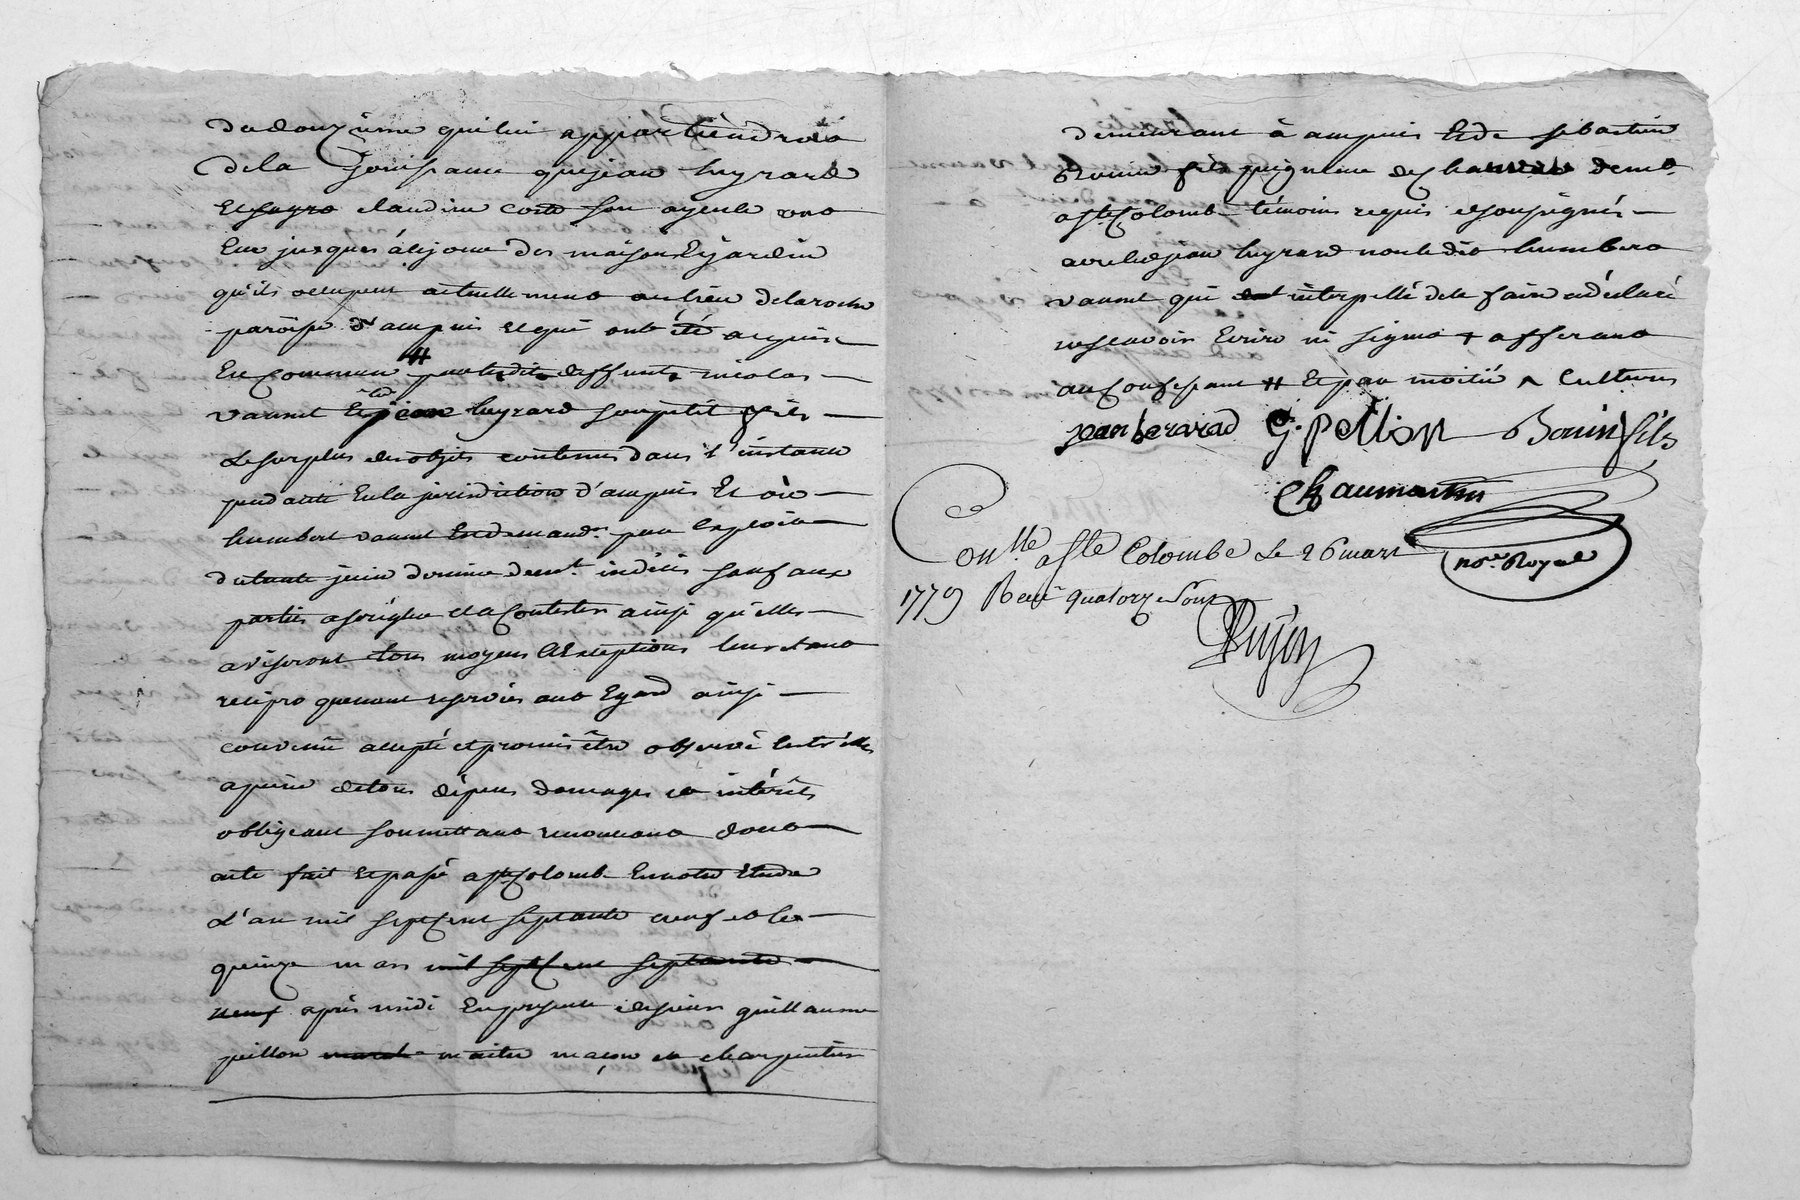 du douzième qui lui appartiendra
de la jouissance que jean heyraud
et claudine coste son ayeule ont
Eue jusques à ce jour des maison Et jardin
qu'ils occupent actuellement au lieu de la roche
paroisse d'ampuis et qui ont été acquis
En Commun # par lesdits deffunts nicolas
vannet Et jean heyraud son petit fils
Le surplus des objets contenus dans l'instance
pendante En la jurisdiction d'ampuis Et où
humbert vannet Est demandr. par Exploit
du trente juin dernier demt. indécis sauf aux
parties a y règler et a Contester ainsi qu'elles
aviseront tous moyens et Exceptions leur étant
réciproquement reservés aut Egard ainsi
convenu accepté et promis être observé Entr'elles
a peine de tous dépens domages et intérêts
obligeant soumettant renonceant dont
acte fait et passé a ste Colombe En notre étude
L'an mil sept cent septante neuf et le
quinze mars mil sept cent septante
neuf après midi En presence de sieurs guillaume
peillon maitre maçon et charpentier
demeurant à ampuis Et de sebastien
Bonin fils peigneur de chanvre demt.
a ste Colombe témoins requis et soussignés
avec led jean heyraud non led humbert
vannet qui interpellé de le faire a déclaré
ne scavoir Ecrire ni signer + afferant
au Confessant # Et par moitié ^ Cultures
jean herarad G. Pellion Bonin fils
Chaumartin
nore. Royal
Conllé a Ste Colombe Le 26 mars
1779 Recu quatorze sous
Dujon